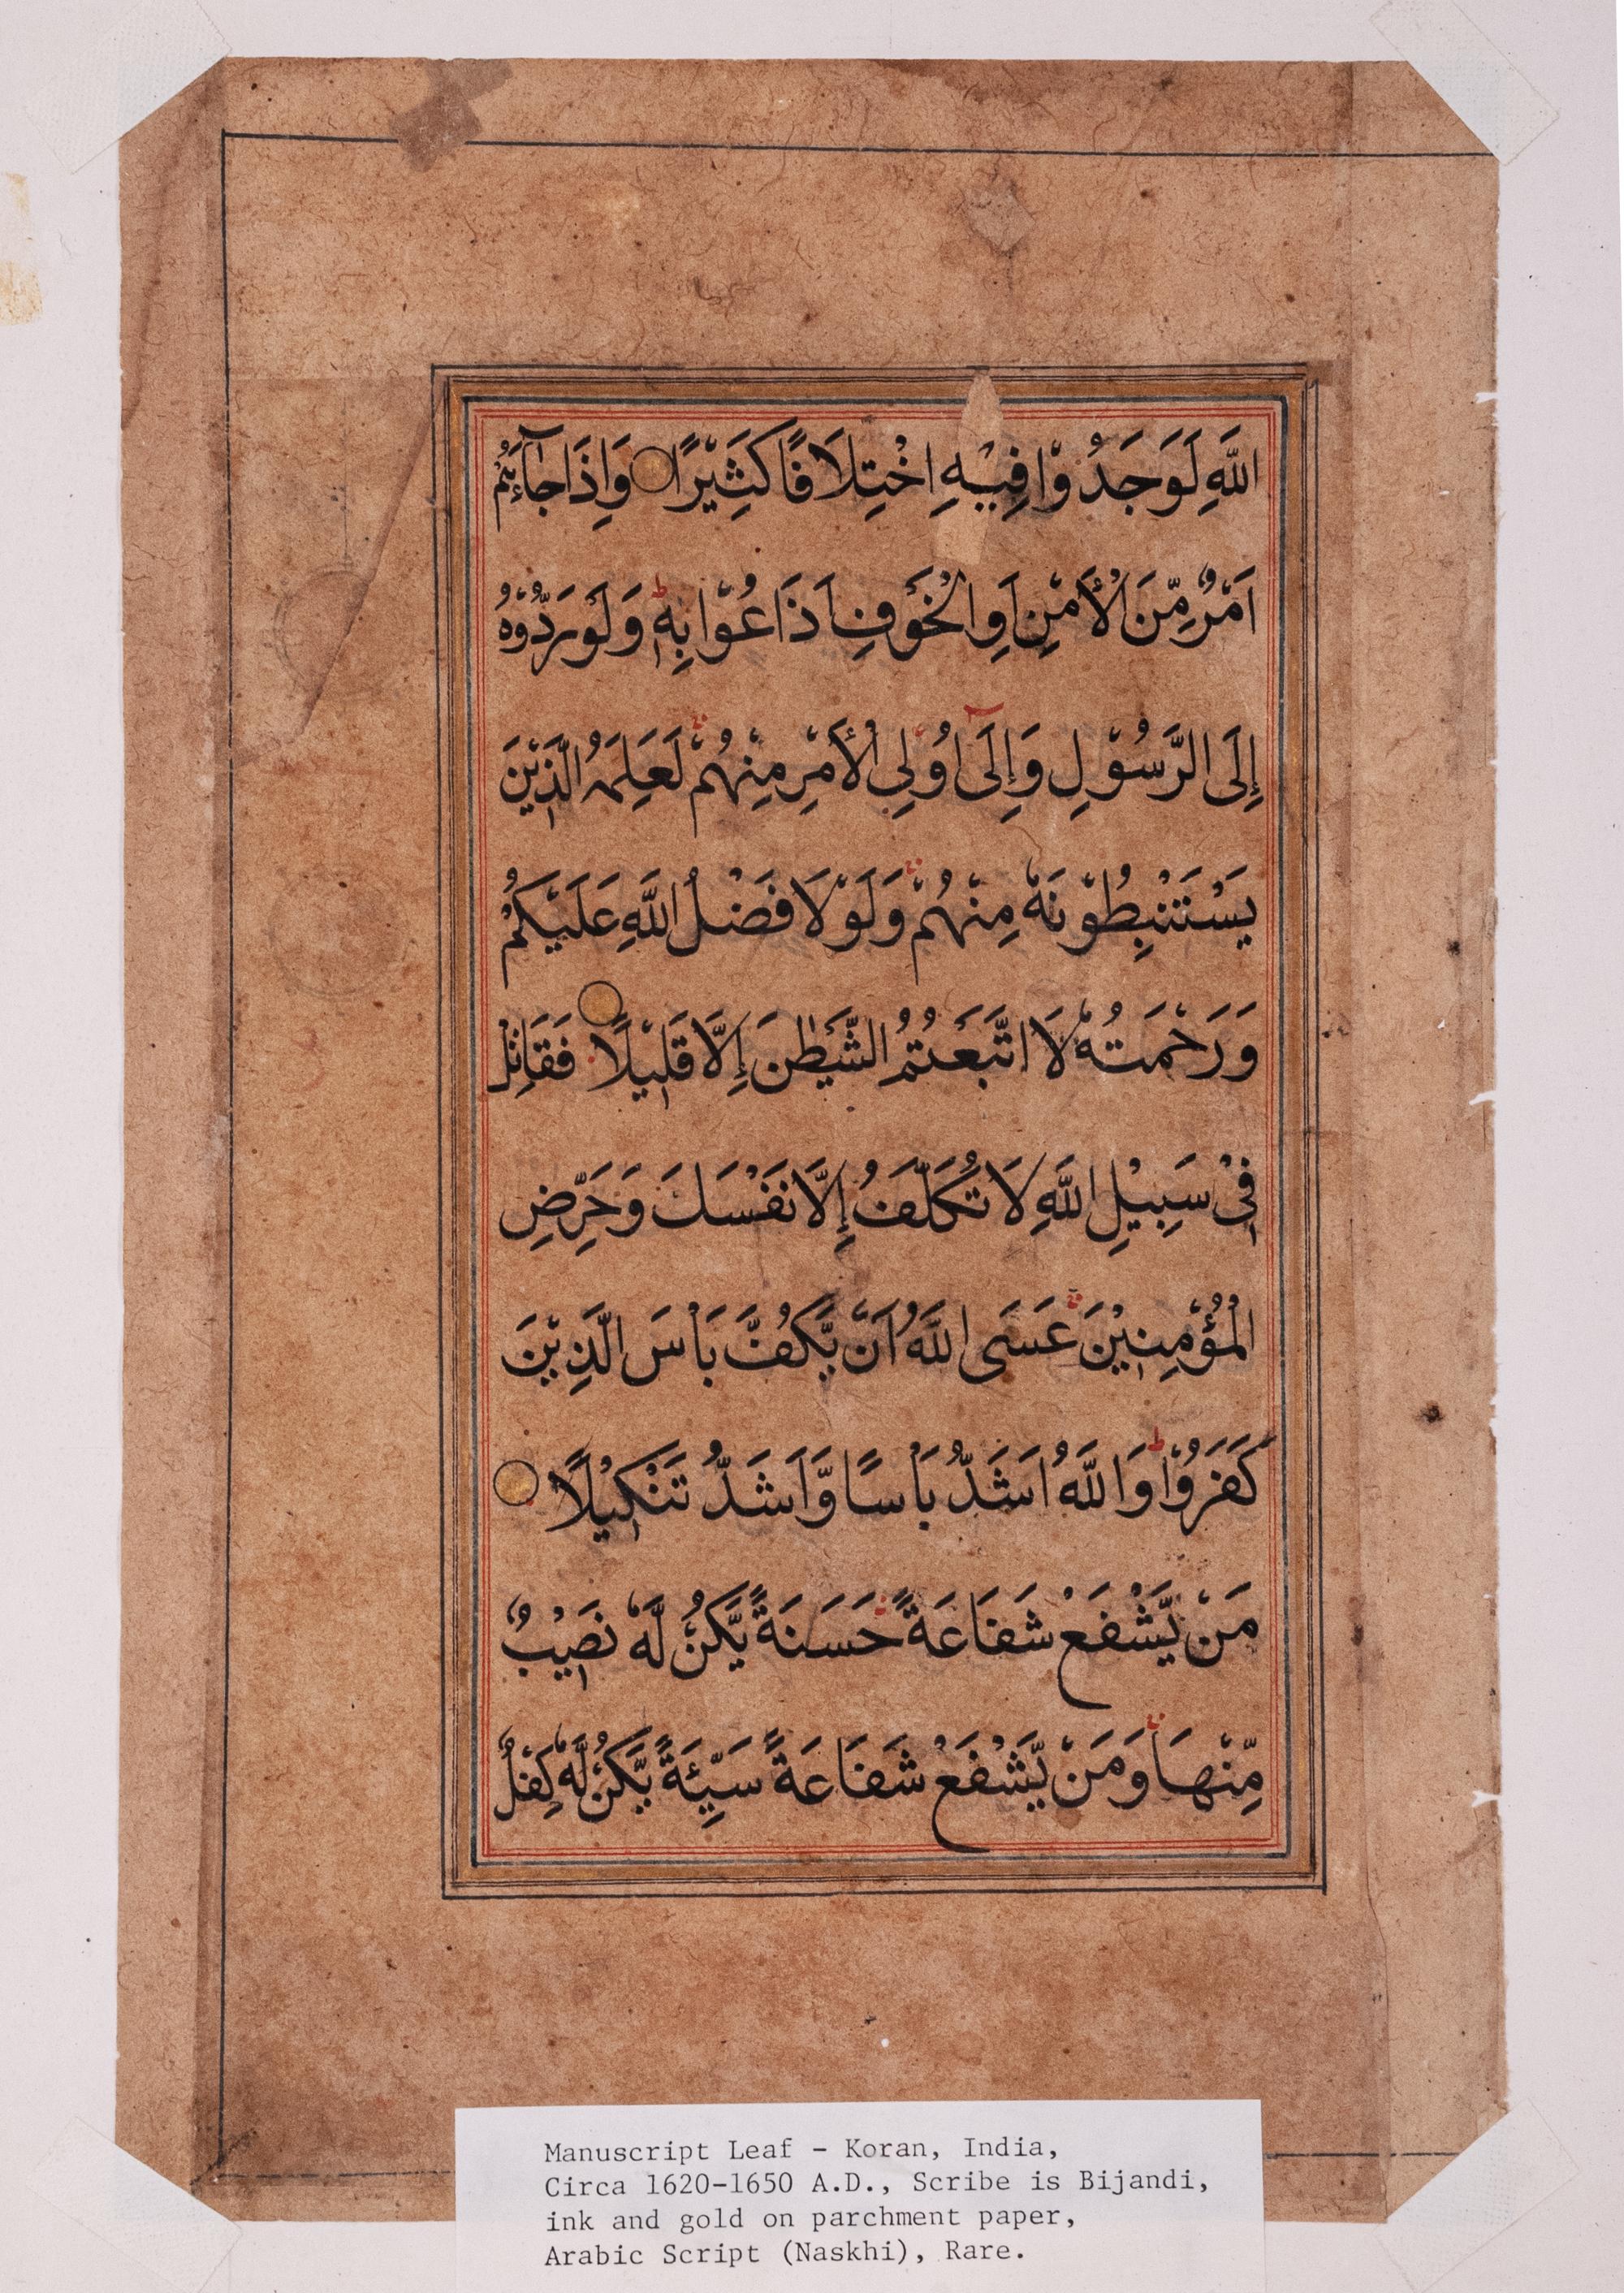 اللّٰهِ لَوَجَدُوْا فِيْهِ اخْتِلَافًا كَثِيْرًا وَاِذَا جَآءَهُمْ
اَمْرٌ مِّنَ الْأَمْنِ اَوِ الْخَوْفِ اَذَاعُوْا بِهٖ ط وَلَوْ رَدُّوْهُ
اِلَى الرَّسُوْلِ وَاِلٰٓى اُولِي الْأَمْرِ مِنْهُمْ لَعَلِمَهُ الَّذِيْنَ
يَسْتَنْبِطُوْنَهٗ مِنْهُمْ وَلَوْلَا فَضْلُ اللّٰهِ عَلَيْكُمْ
وَرَحْمَتُهٗ لَا اتَّبَعْتُمُ الشَّيْطٰنَ اِلَّا قَلِيْلًا فَقَاتِلْ
فِيْ سَبِيْلِ اللّٰهِ لَا تُكَلَّفُ اِلَّا نَفْسَكَ وَحَرِّضِ
الْمُؤْمِنِيْنَ عَسَى اللّٰهُ اَنْ يَّكُفَّ بَاْسَ الَّذِيْنَ
كَفَرُوْا ط وَاللّٰهُ اَشَدُّ بَاْسًا وَّاَشَدُّ تَنْكِيْلًا
مَنْ يَّشْفَعْ شَفَاعَةً حَسَنَةً يَّكُنْ لَّهٗ نَصِيْبٌ
مِّنْهَا وَمَنْ يَّشْفَعْ شَفَاعَةً سَيِّئَةً يَّكُنْ لَّهٗ كِفْلٌ
Manuscript Leaf - Koran, India,
Circa 1620-1650 A.D., Scribe is Bijandi,
ink and gold on parchment paper,
Arabic Script (Naskhi), Rare.